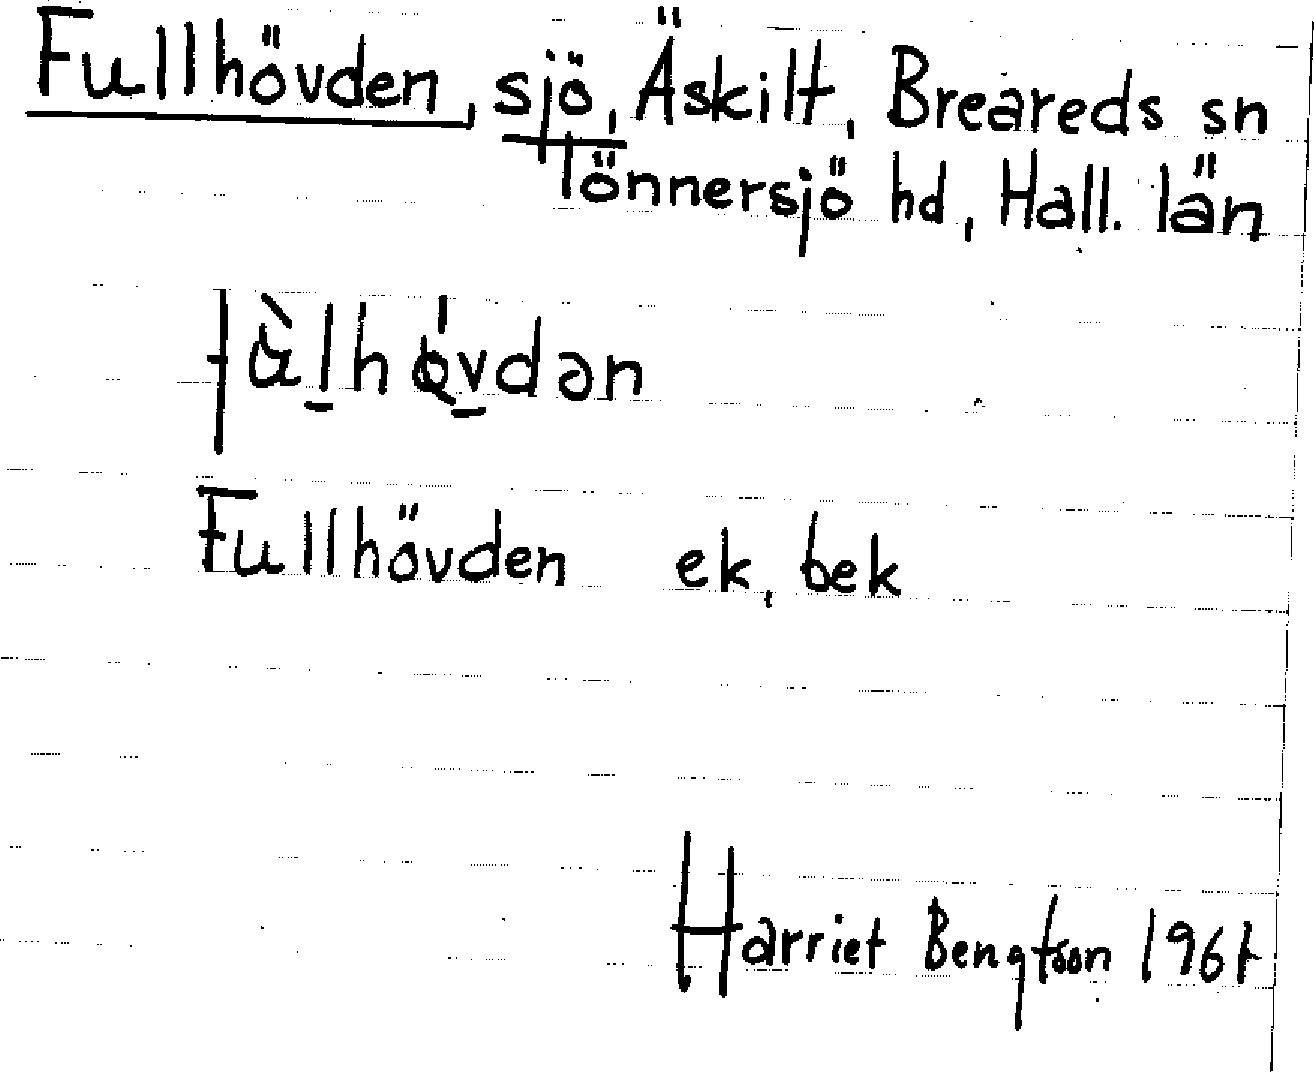 Fullhövden, sjö, Äskilt, Breareds sn
Tönnersjö hd, Hall. län
fàl̠hǫ́v̠dən
Fullhövden ek, bek
Harriet Bengtson